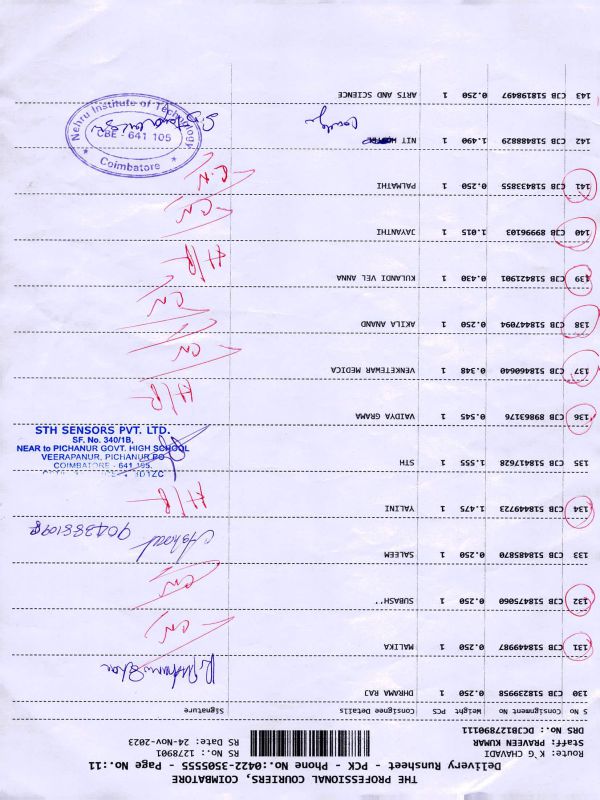 THE PROFESSIONAL COURIERS, COIMBATORE
Delivery Runsheet - PCK - Phone No.:0422-3505555 - Page No.:11
Route: K G CHAVADI
Staff: PRAVEEN KUMAR
DRS No.: DCJB127890111
RS No.: 1278901
RS Date: 24-Nov-2023
S No Consignment No Weight PCS Consignee Details Signature
130 CJB 518239958 0.250 1 DHRAMA RAJ
131 CJB 518449987 1 MALIKA CN
132 CJB 518475060 0.250 1 SUBASH'' CN
133 CJB 518485870 0.250 1 SALEEM 9043881098
134 CJB 518449723 1.475 1 YALINI H/R
135 CJB 518417628 1.555 1 STH
STH SENSORS PVT. LTD.
SF. No. 340/1B,
NEAR to PICHANUR GOVT. HIGH SCHOOL
VEERAPANUR, PICHANUR PO
COIMBATORE - 641 105.
136 CJB 89863176 0.545 1 VAIDYA GRAMA H/R
137 CJB 518460640 0.348 1 VENKETEWAR MEDICA CN
138 CJB 518447094 0.250 1 AKILA ANAND CN
139 CJB 518421901 0.430 1 KULANDI VEL ANNA H/R
140 CJB 89996103 1.015 1 JAYANTHI CN
141 CJB 518433855 0.250 1 PALMATHI C.N
142 CJB 518488829 1.490 1 NIT
Nehru Institute of Technology
CBE - 641 105
Coimbatore
143 CJB 518198497 0.250 1 ARTS AND SCIENCE